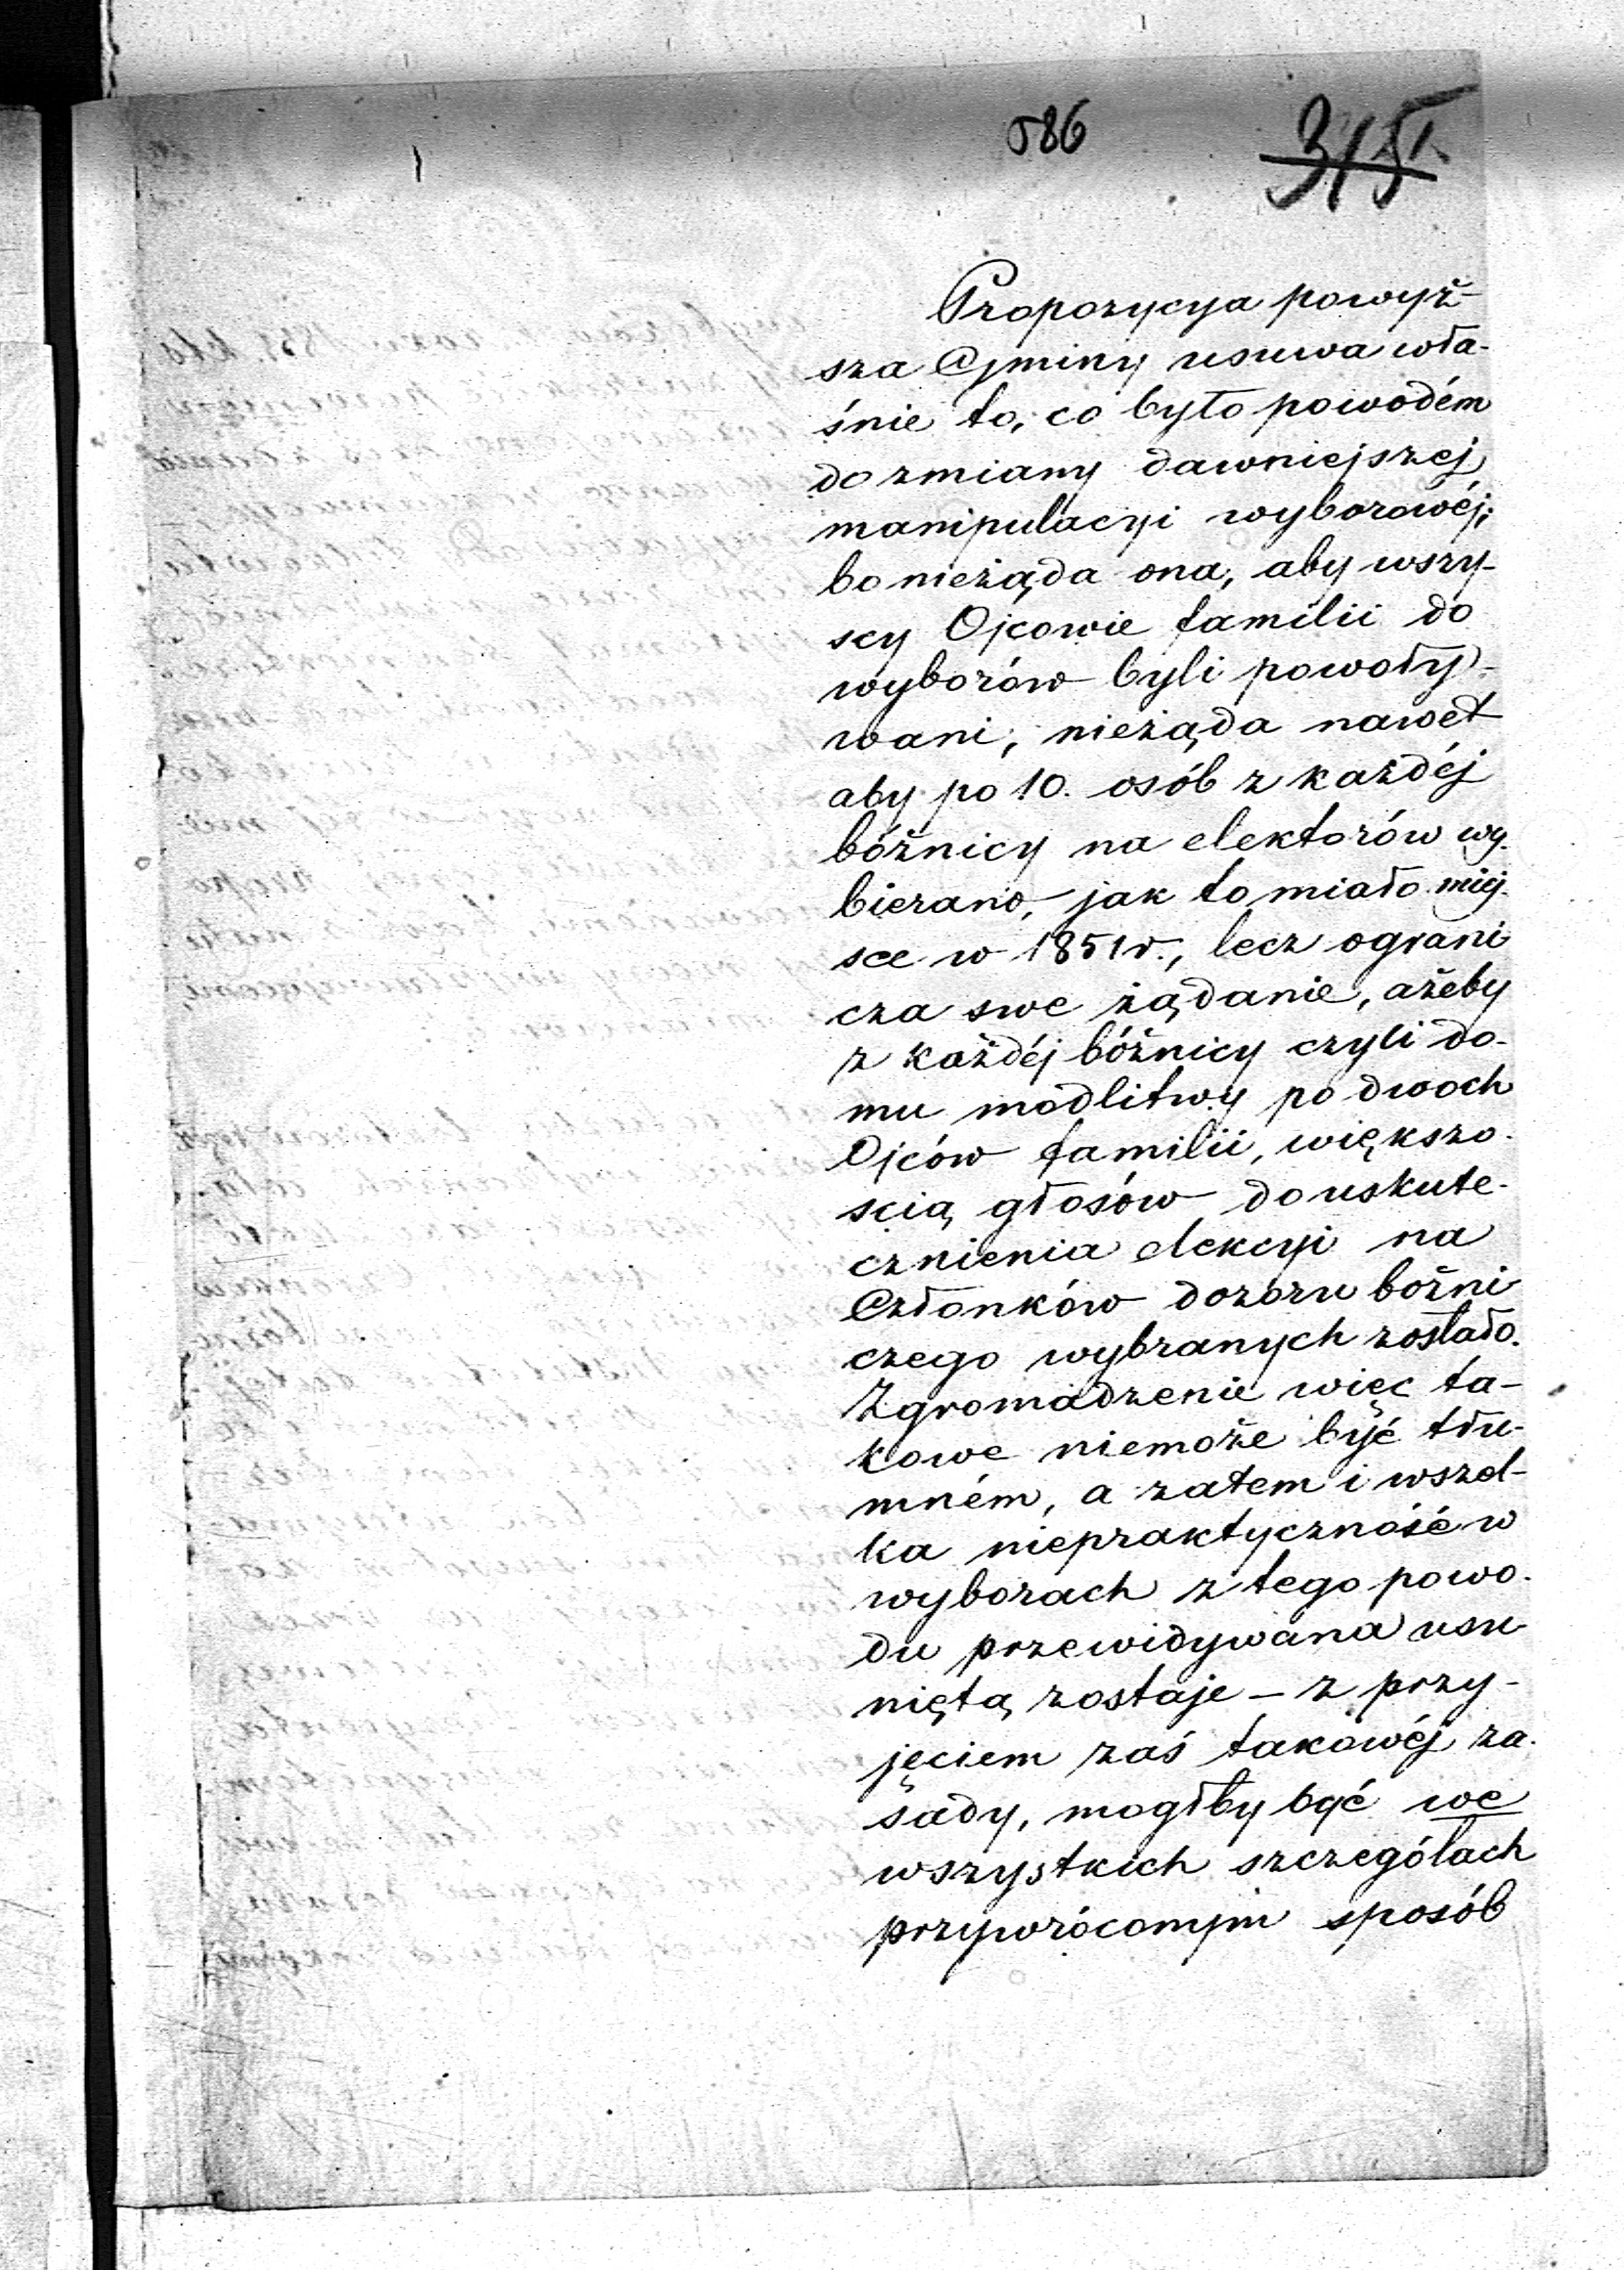 586
Propozycya powyż-
sza Gminy usuwa wła-
śnie to, co było powodém
do zmiany dawniejszej
manipulacyi wyborowéj;
bo nieżąda ona, aby wszy-
scy Ojcowie familii do
wyborów byli powoły-
wani, nieżąda nawet
aby po 10. osób z każdéj
bóżnicy na elektorów wy-
bierano, jak to miało miej-
sce w 1851 r., lecz ograni
cza swe żądanie, ażeby
z każdéj bóżnicy czyli do-
mu modlitwy po dwoch
Ojców familii, większo-
scią głosów do uskute-
cznienia elekcyi na
Członków dozoru bożni
czego wybranych zostało.
Zgromadzenie więc ta-
kowe niemoże być tłu-
mném, a zatem i wszel-
ka niepraktyczność w
wyborach z tego powo-
du przewidywana usu-
niętą zostaje – z przy-
jęciem zaś takowéj za-
sady, mogłby być we
wszystkich szczegółach
przywróconym sposób